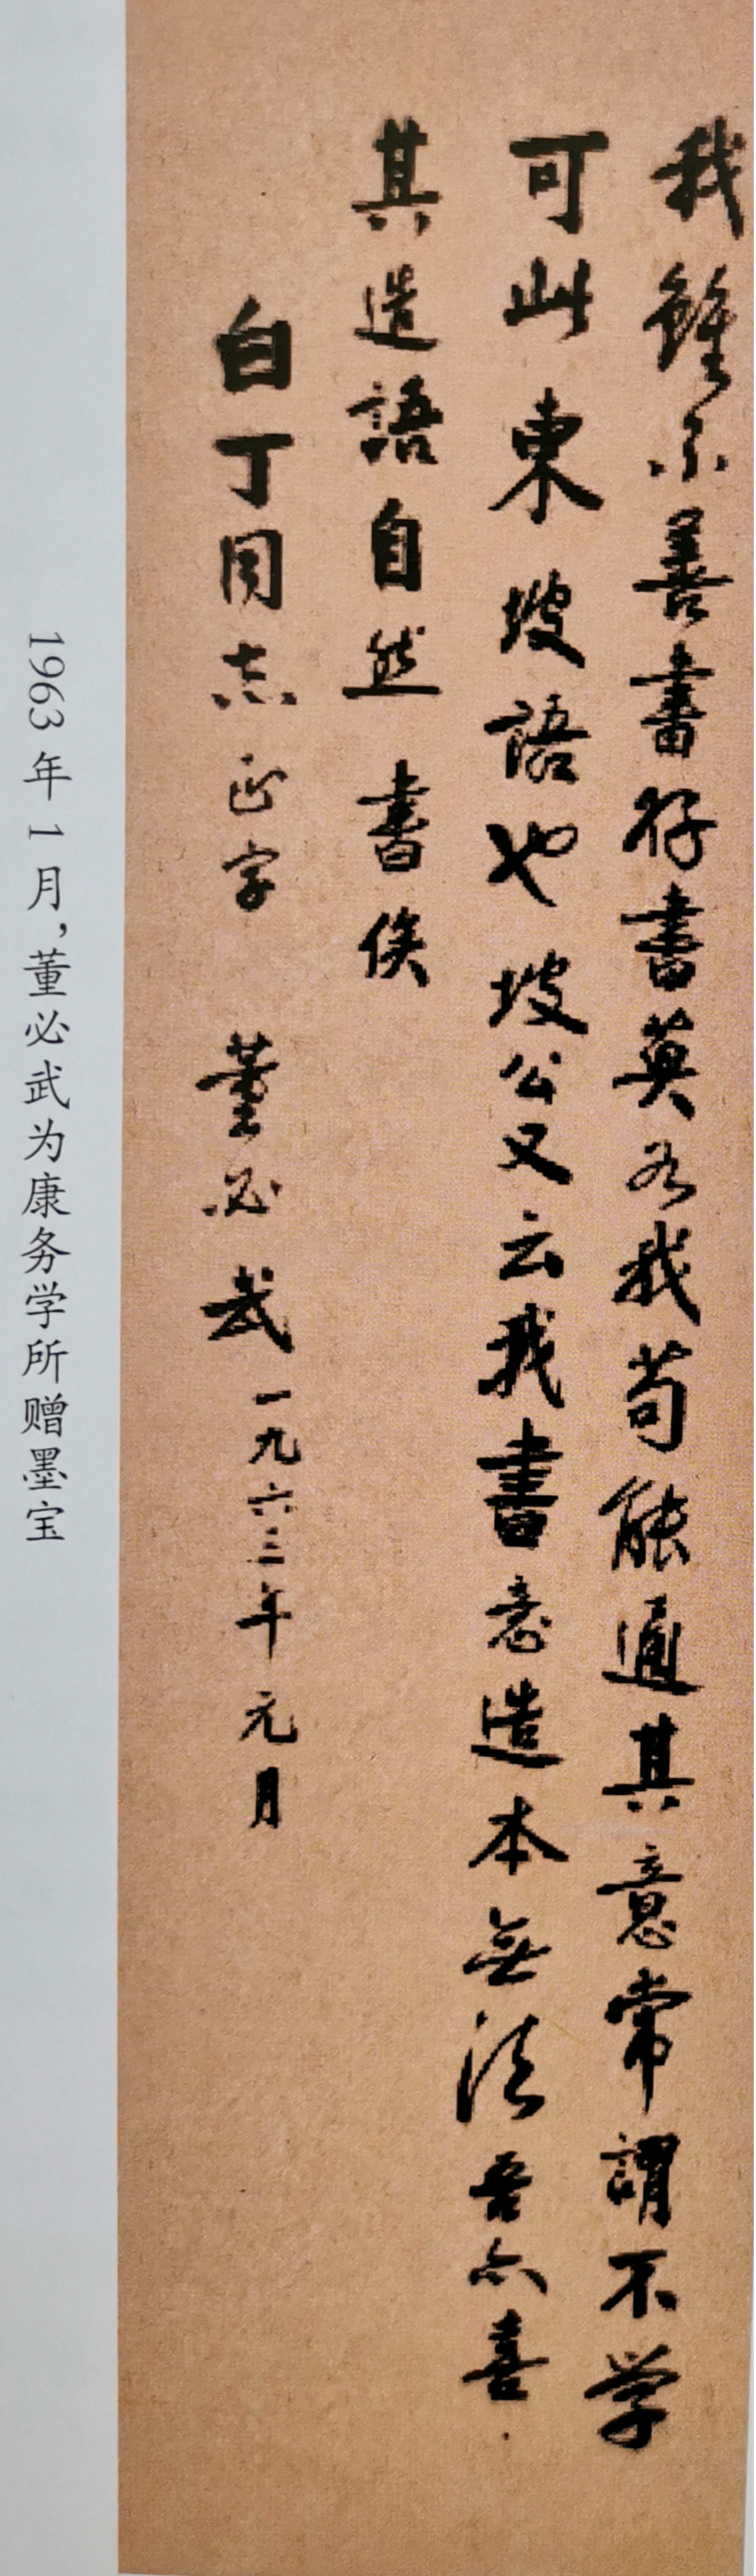 我雖不善書好書莫若我苟能通其意常謂不學
可此東坡語也坡公又云我書意造本無法吾亦喜
其造語自然 書俟
白丁同志正字 董必武 一九六三年元月
1963年1月,董必武为康务学所赠墨宝